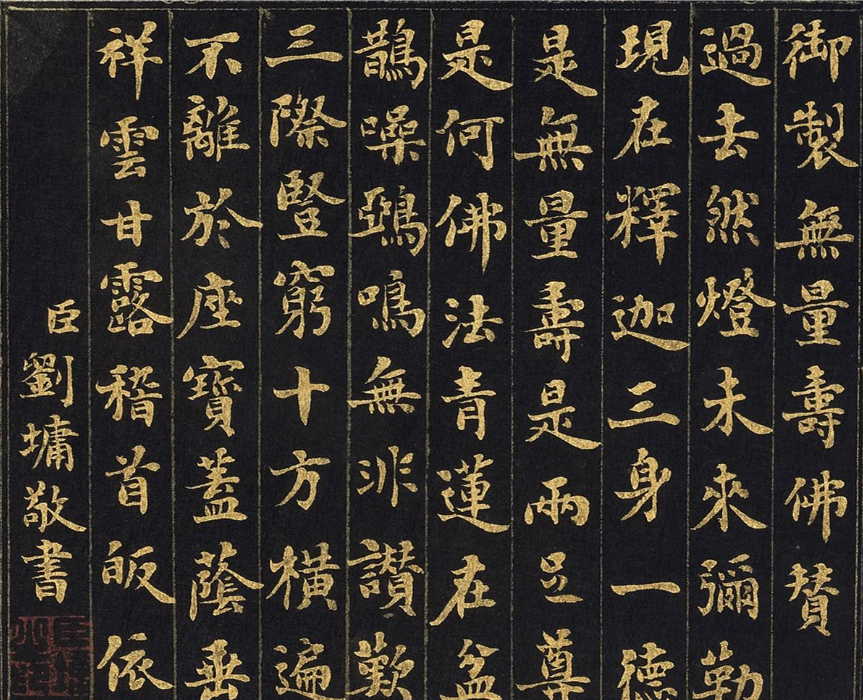 御製無量壽佛贊
過去然燈未來彌勒
現在釋迦三身一德
是無量壽是兩足尊
是何佛法青蓮在盆
鵲噪鵶鳴無非讃歎
三際豎窮十方橫遍
不離於座寶蓋蔭垂
祥雲甘露稽首皈依
臣劉墉敬書